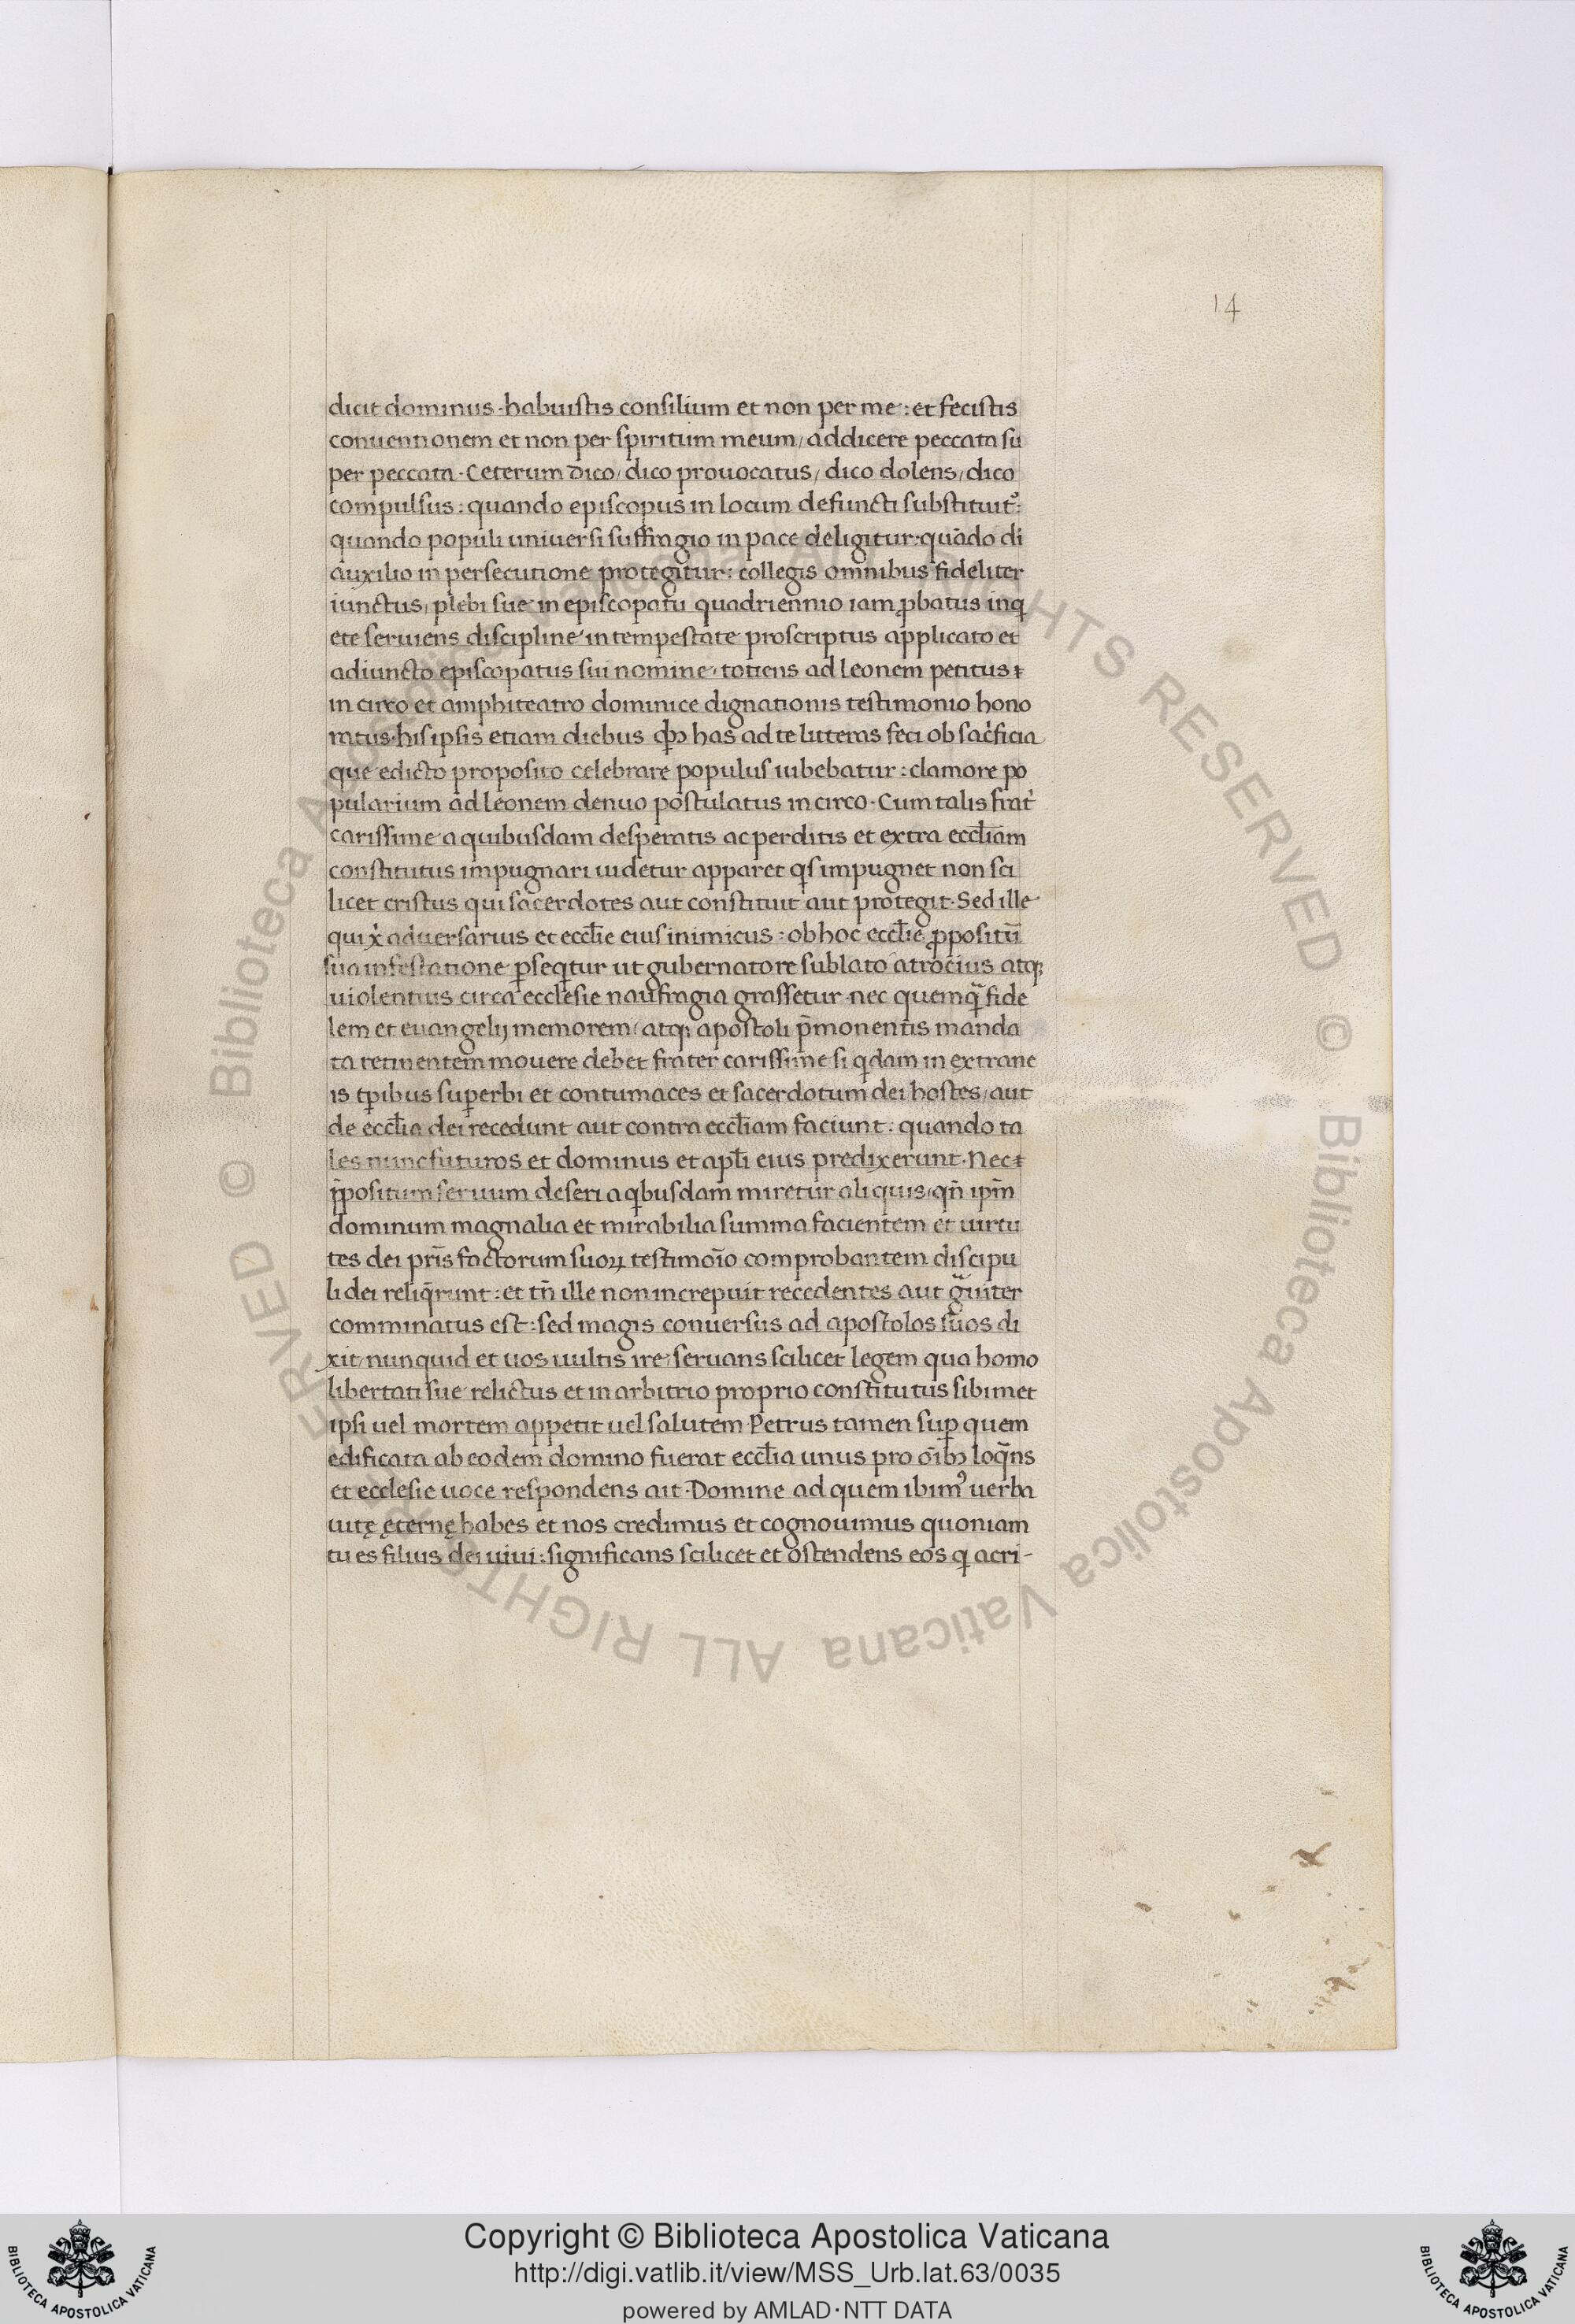 14
dicit dominus·habuistis consilium et non per me: et fecistis
conuentionem et non per spiritum meum, addicere peccata su
per peccata·Ceterum dico, dico prouocatus, dico dolens, dico
compulsus: quando episcopus in locum defuncti substituit᷒:
quando populi uniuersi suffragio in pace deligitur: quādo di
auxilio in persecutione protegitur: collegis omnibus fideliter
iunctus, plebi sue in episcopatu quadriennio iam ꝓbatus inq
ete seruiens discipline in tempestate proscriptus applicato et
adiuncto episcopatus sui nomine, totiens ad leonem petitus ⁊
in circo et amphiteatro dominice dignationis testimonio hono
ratus·his ipsis etiam diebus has ad te litteras feci ob sac̓ficia
que edicto proposito celebrare populus iubebatur: clamore po
pularium ad leonem denuo postulatus in circo·Cum talis frat̓
carissime a quibusdam desperatis ac perditis et extra eccl̄iam
constitutus impugnari uidetur apparet qͥs impugnet non sci
licet cristus qui sacerdotes aut constituit aut protegit·Sed ille
qui x̓ aduersarius et eccl̄ie eius inimicus: ob hoc eccl̄ie ꝓpositū
sua infestatione ꝑseqͥtur ut gubernatore sublato atrocius atqꝫ
uiolentius circa ecclesie naufragia grassetur·nec quemqᷓ fide
lem et euangelij memorem, atqꝫ apostoli p̄monentis manda
ta retinentem mouere debet frater carissime si qͥdam in extrane
is tꝑibus suꝑerbi et contumaces et sacerdotum dei hostes, aut
de eccl̄ia dei recedunt aut contra eccl̄iam faciunt: quando ta
les nunc futuros et dominus et apl̄i eius predixerunt·Nec ⁊
p̄positum seruum deseri a qͥbusdam miretur aliquis, qn̄ ipm̄
dominum magnalia et mirabilia summa facientem et uirtu
tes dei pr̄is factorum suoꝝ testimoīo comprobantem discipu
li dei reliq̄runt: et tn̄ ille non increpuit recedentes aut gᷓuiter
comminatus est: sed magis conuersus ad apostolos suos di
xit, nunquid et uos uultis ire, seruans scilicet legem qua homo
libertati sue relictus et in arbitrio proprio constitutus sibimet
ipsi uel mortem appetit uel salutem·Petrus tamen suꝑ quem
edificata ab eodem domino fuerat eccl̄ia unus pro oībꝫ loq̄ns
et ecclesie uoce respondens ait·Domine ad quem ibimꝰ uerba
uitę ęternę habes et nos credimus et cognouimus quoniam
tu es filius dei uiui: significans scilicet et ostendens eos qͥ acri-
© Biblioteca Apostolica Vaticana ALL RIGHTS RESERVED © Biblioteca Apostolica Vaticana ALL RIGHTS RESERVED
Copyright © Biblioteca Apostolica Vaticana
http://digi.vatlib.it/view/MSS_Urb.lat.63/0035
powered by AMLAD·NTT DATA
BIBLIOTECA APOSTOLICA VATICANA
BIBLIOTECA APOSTOLICA VATICANA